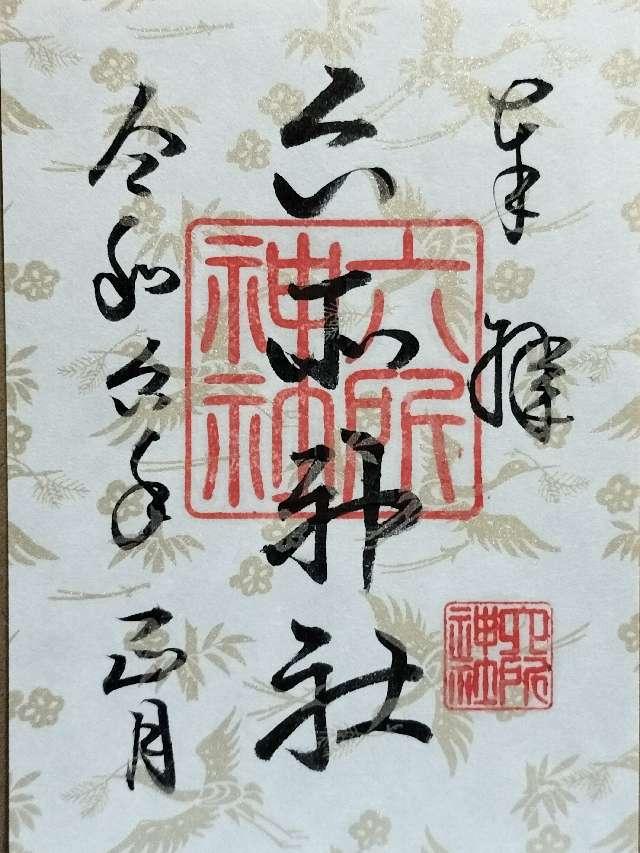 奉拝
六所神社
令和六年 正月
六所神社
六所神社